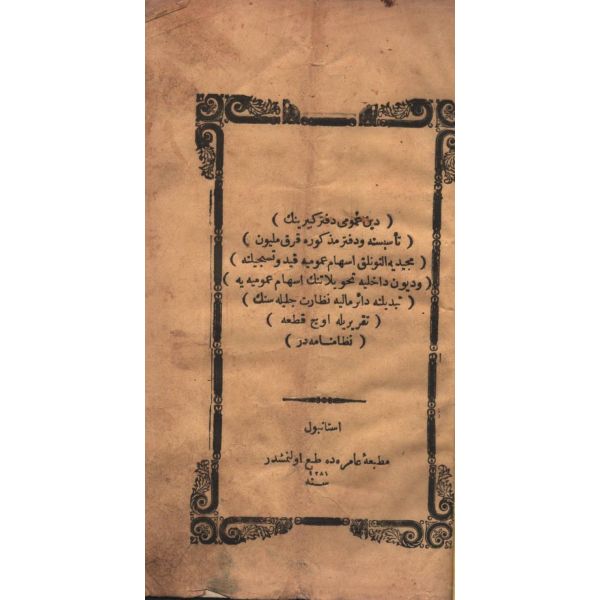 ( دين عمومى دفتر كبيرينك )
( تأسيسنه ودفتر مذكوره قرق مليون )
( مجيديه التونلق اسهام عموميه قيد وتسجيلنه )
( وديون داخليه تحويلاتنك اسهام عموميه يه )
( تبديلنه دائر ماليه نظارت جليله سنك )
( تقريريله اوچ قطعه )
( نظامنامه در )
استانبول
مطبعۀ عامره ده طبع اولنمشدر
سنه ١٢٨١